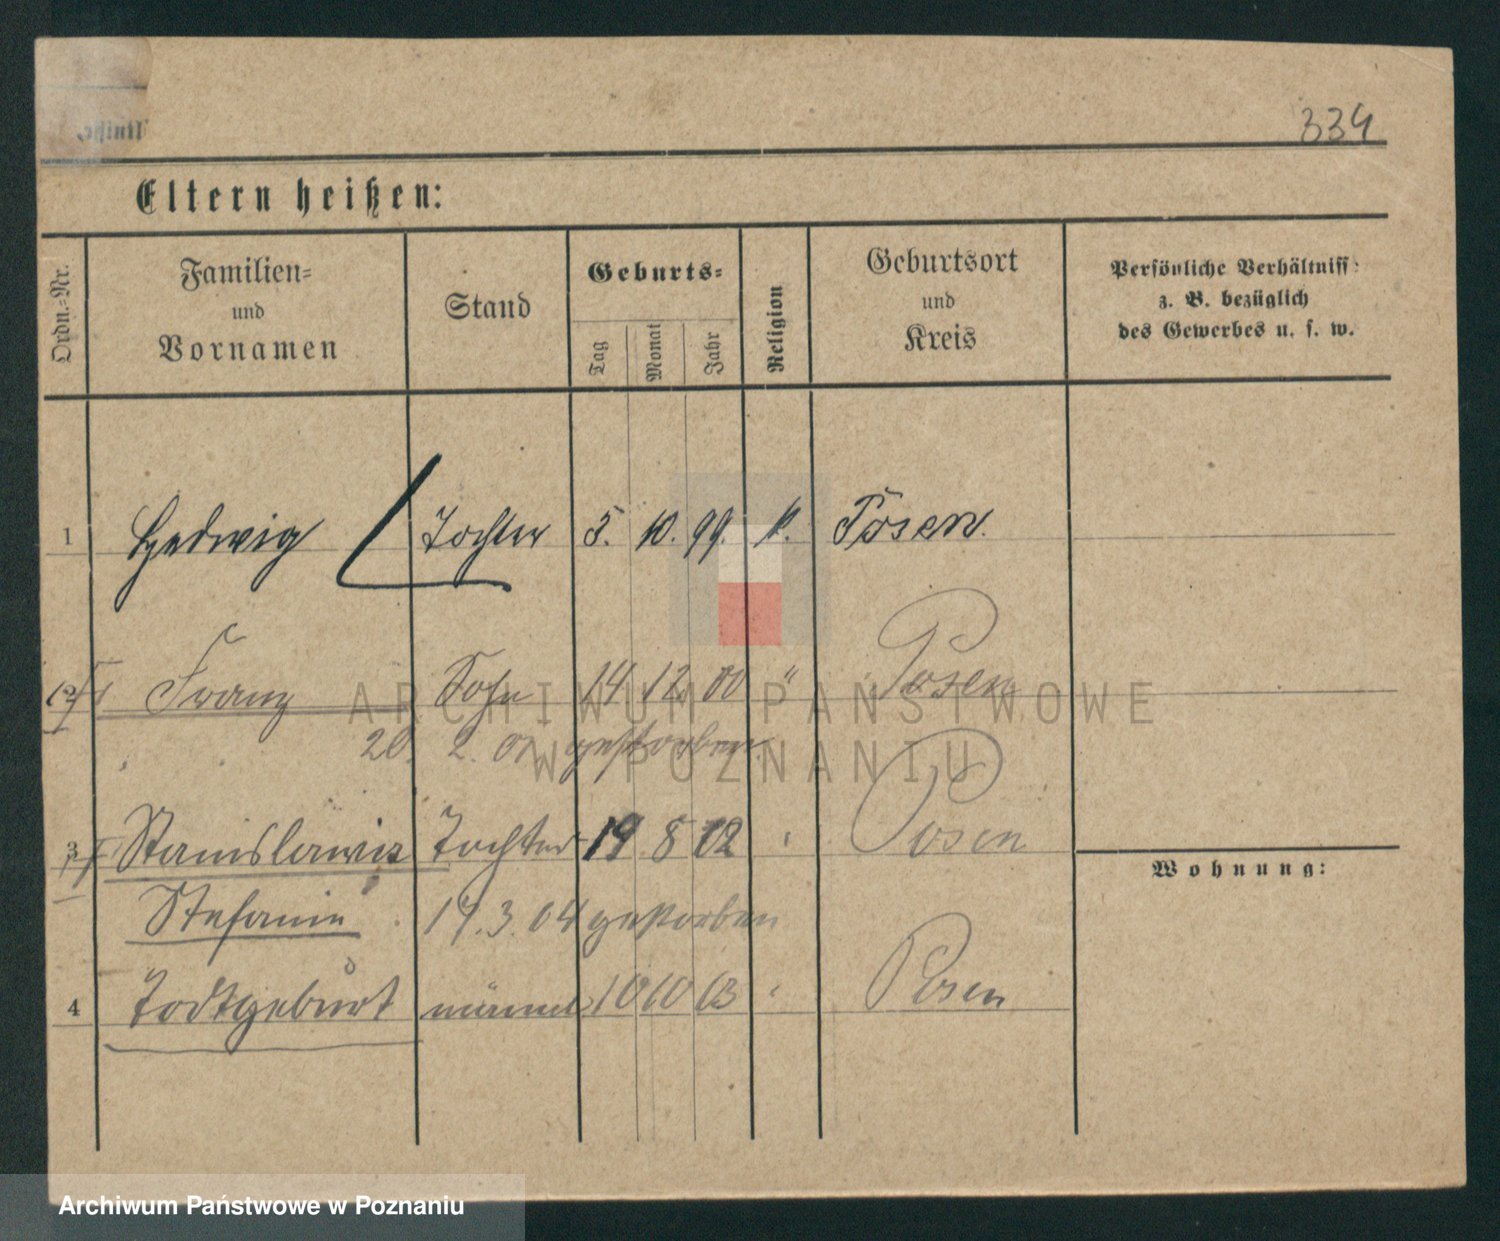 334
Eltern heißen:
Ordn.-Nr.
Familien- und Vornamen
Stand
Geburts-
Tag
Monat
Jahr
Religion
Geburtsort und Kreis
Persönliche Verhältniss
z. B. bezüglich
des Gewerbes u. s. w.
1 Hedwig Tochter 5. 10. 99. k. Posen.
Franz Sohn 14 12 00 " Posen
20. 2. 01 gestorben
3 Stanislawa Tochter 19 8 02 Posen
Wohnung:
Stefanie 17. 3. 04 gestorben
4 Todtgeburt männl 10 10 03 Posen
ARCHIWUM PAŃSTWOWE
W POZNANIU
Archiwum Państwowe w Poznaniu